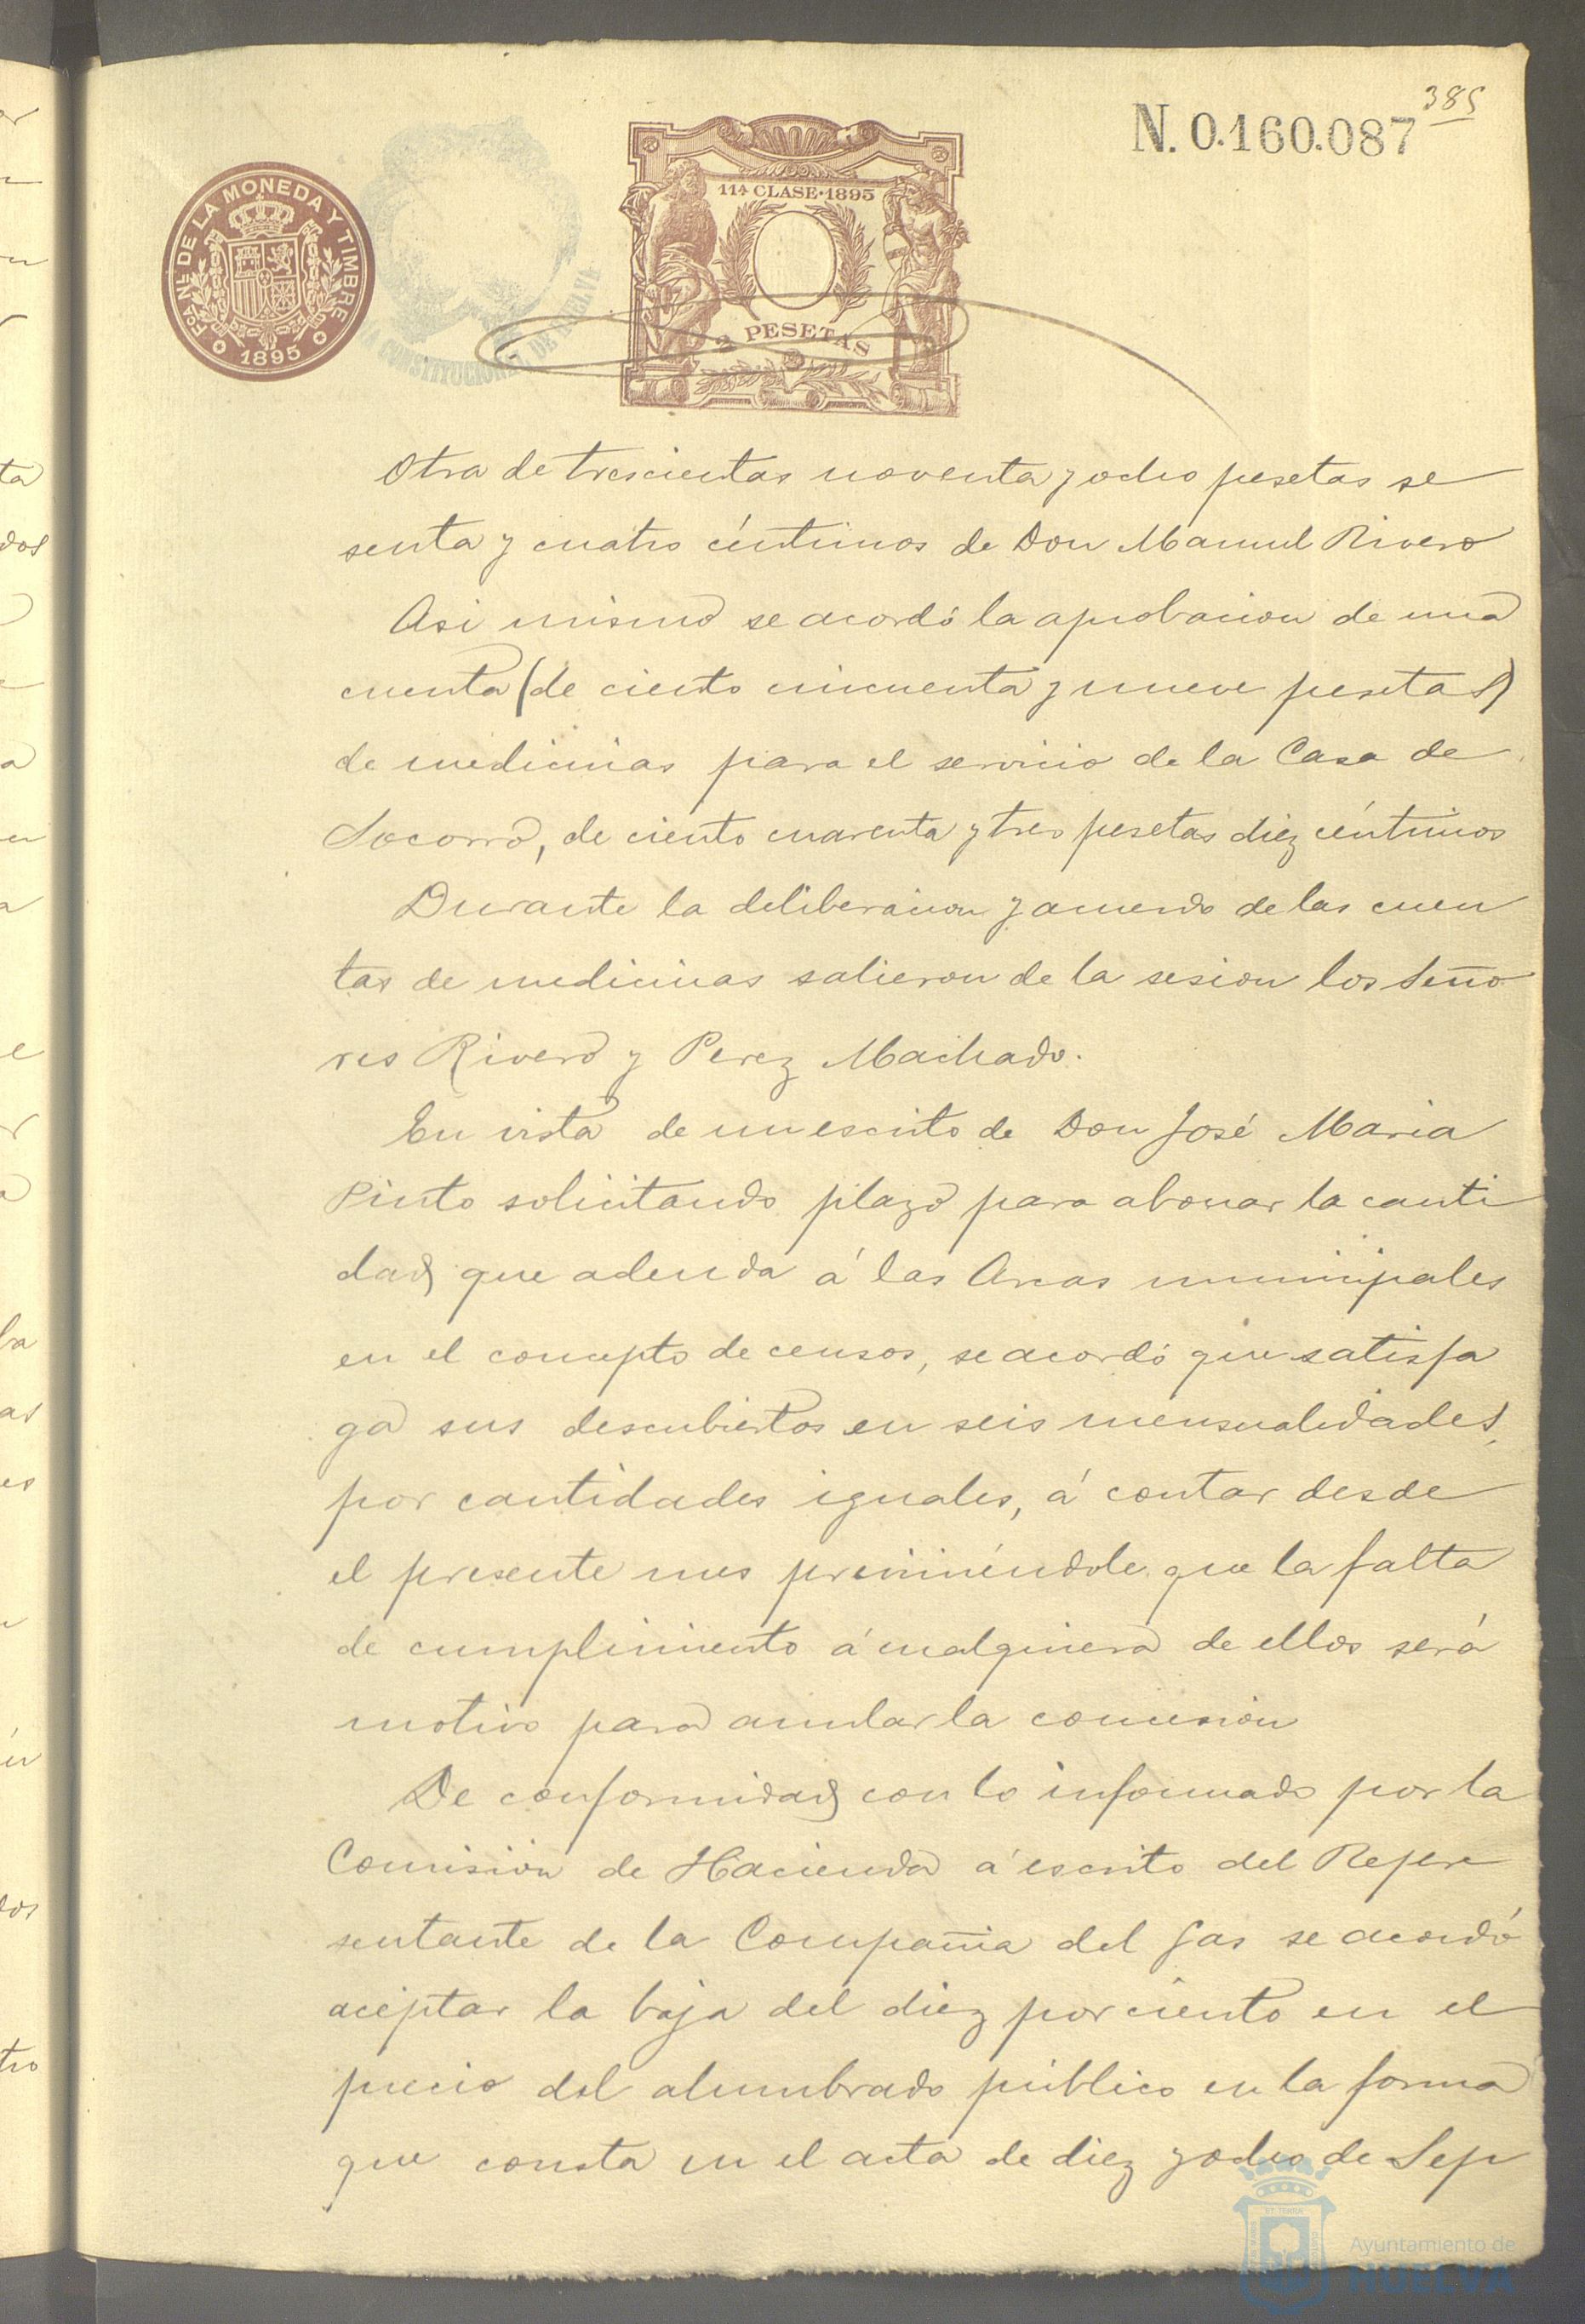 385
N. 0.160.087
FCA. NL. DE LA MONEDA Y TIMBRE
1895
CONSTITUCIONAL DE HUELVA
11ª CLASE·1895
2 PESETAS
Otra de trescientas noventa y ocho pesetas se
senta y cuatro céntimos de Don Manuel Rivero
Asi mismo se acordó la aprobacion de una
cuenta (de ciento cincuenta y nueve pesetas)
de medicinas para el servicio de la Casa de
Socorro, de ciento cuarenta y tres pesetas diez céntimos
Durante la deliberacion y acuerdo de las cuen
tas de medicinas salieron de la sesion los Seño
res Rivero y Perez Machado.
En vista de un escrito de Don José Maria
Pinto solicitando plazo para abonar la canti
dad que adeuda á las Arcas municipales
en el concepto de censos, se acordó que satisfa
ga sus descubiertos en seis mensualidades,
por cantidades iguales, á contar desde
el presente mes previniéndole que la falta
de cumplimiento á cualquiera de ellos será
motivo para anular la concesión
De conformidad con lo informado por la
Comisión de Hacienda á escrito del Repre
sentante de la Compañia del Gas se acordó
aceptar la baja del diez por ciento en el
precio del alumbrado público en la forma
que consta en el acta de diez y ocho de Sep
Ayuntamiento de
HUELVA